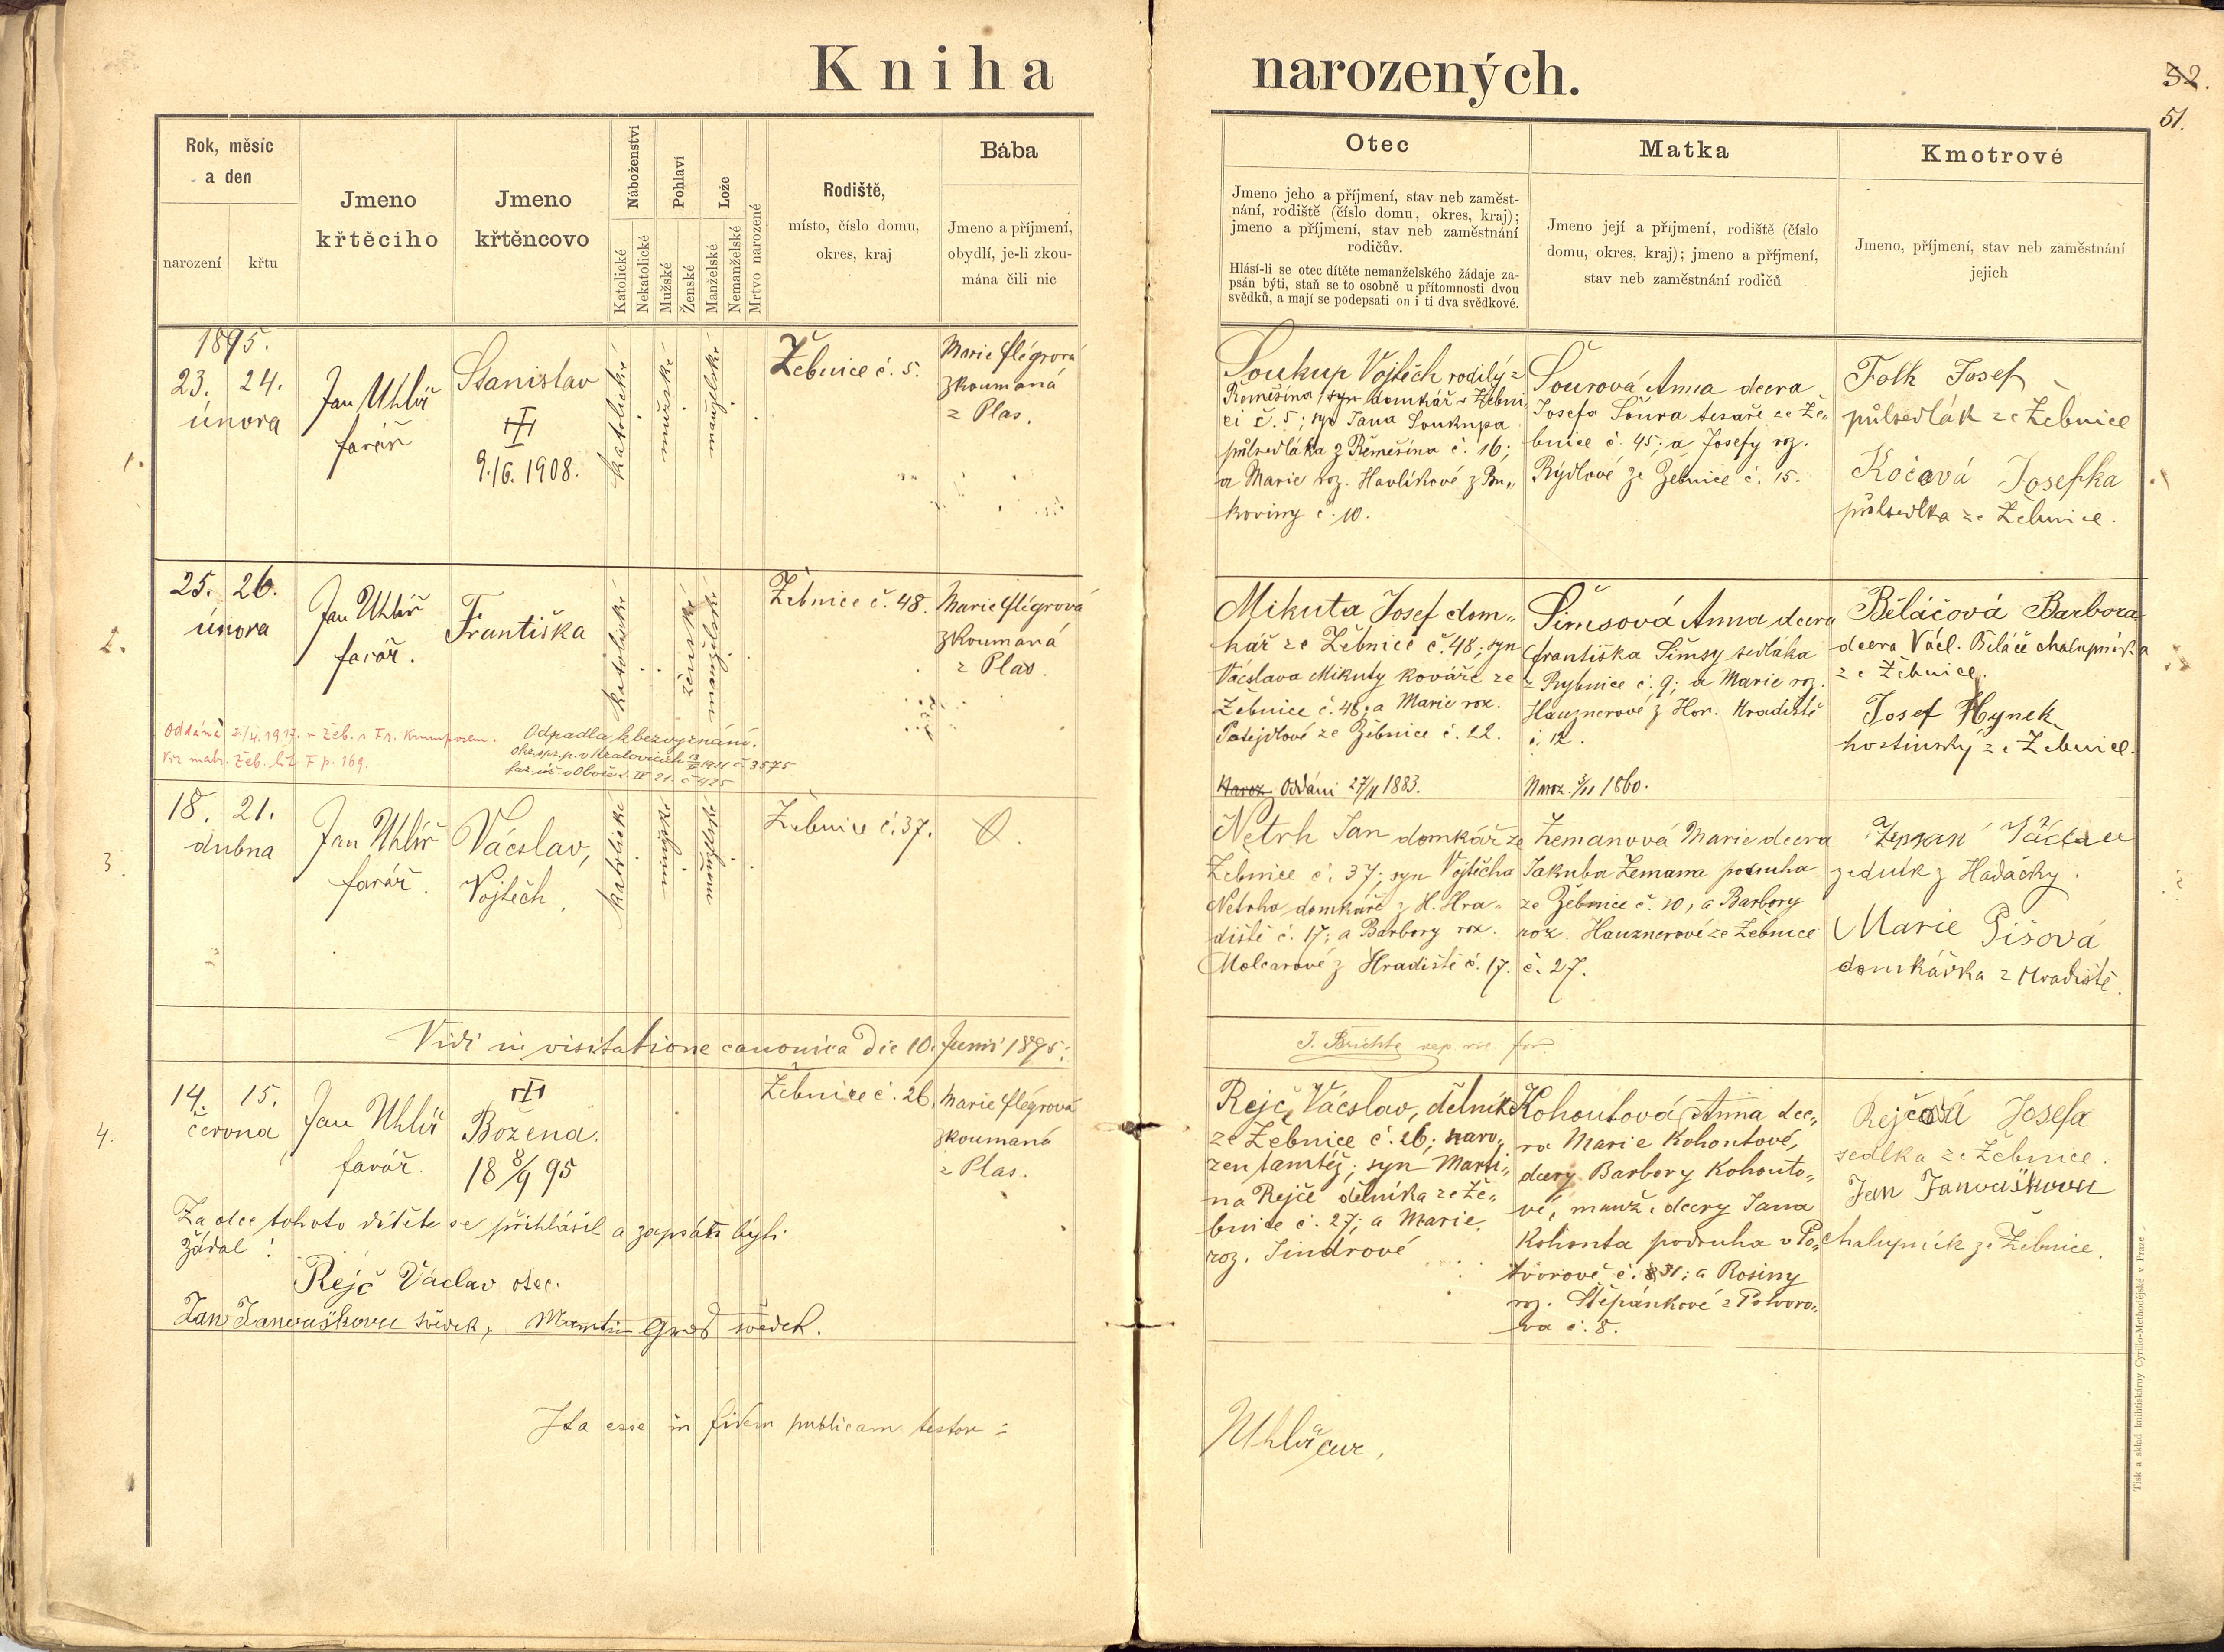 Kniha narozených.
32.
51.
Rok, měsíc
a den
narození
křtu
Jmeno
křtěcího
Jmeno
křtěncovo
Náboženství
Katolické
Nekatolické
Pohlaví
Mužské
Ženské
Lože
Manželské
Nemanželské
Mrtvo narozené
Rodiště,
místo, číslo domu,
okres, kraj
Bába
Jmeno a příjmení,
obydlí, je-li zkou-
mána čili nic
Otec
Jmeno jeho a příjmení, stav neb zaměst-
nání, rodiště (číslo domu, okres, kraj);
jmeno a příjmení, stav neb zaměstnání
rodičův.
Hlásí-li se otec dítěte nemanželského žádaje za-
psán býti, staň se to osobně u přítomnosti dvou
svědků, a mají se podepsati on i ti dva svědkové.
Matka
Jmeno její a příjmení, rodiště (číslo
domu, okres, kraj); jmeno a příjmení,
stav neb zaměstnání rodičů
Kmotrové
Jmeno, příjmení, stav neb zaměstnání
jejich
1.
1895.
23. 24.
února
Jan Uhlíř
farář
Stanislav
9./6. 1908.
katolické
mužské
manželské
Žebnice č. 5.
Marie Flégrová
zkoumaná
z Plas.
Soukup Vojtěch rodilý z
Řemešína, syn domkář v Žebni
ci č. 5; syn Jana Soukupa
půlsedláka z Řemešína č. 16;
a Marie roz. Havlíkové z Bu„
koviny č. 10.
Šourová Anna dcera
Josefa Šoura tesaře ze Že„
bnice č. 45; a Josefy roz.
Rýdlové ze Žebnice č. 15.
Folk Josef
půlsedlák ze Žebnice
Kočová Josefka
půlsedlka ze Žebnice.
2.
25. 26.
února
Jan Uhlíř
farář.
Františka
katolické
ženské
manželské
Žebnice č. 48.
Marie Flégrová
zkoumaná
z Plas.
Oddána 2/4. 1917. v Žeb. s Fr.
Viz matr. Žeb. lit. F p. 169.
Odpadla k bezvyznání.
Mikuta Josef dom„
kář ze Žebnice č. 48; syn
Václava Mikuty kováře ze
Žebnice č. 48; a Marie roz.
Patejdlové ze Žebnice č. 22.
Šimsová Anna dcera
Františka Šimsy sedláka
z Rybnice č. 9; a Marie roz.
Hauznerové z Hor. Hradiště
č. 12.
Běláčová Barbora
dcera Václ. Běláče chalupníka
ze Žebnice.
Josef Hynek
hostinský ze Žebnice.
Naroz. Oddáni 27/11 1883.
Naroz. 3/11 1860.
3.
18. 21.
dubna
Jan Uhlíř
farář.
Václav,
Vojtěch.
katolické
mužské
manželské
Žebnice č. 37.
Netrh Jan domkář ze
Žebnice č. 37; syn Vojtěcha
Netrha domkáře z H. Hra-
diště č. 17; a Barbory roz.
Molcarové z Hradiště č. 17.
Zemanová Marie dcera
Jakuba Zemana podruha
ze Žebnice č. 10, a Barbory
roz. Hauznerové ze Žebnice
č. 27.
Zeman Václav
zedník z Hadačky.
Marie Píšová
domkářka z Hradiště.
Vidi in visitatione canonica die 10. Junii 1895:
4.
14. 15.
června
Jan Uhlíř
farář.
Božena.
18 8/9 95
Žebnice č. 26.
Marie Flégrová
zkoumaná
z Plas.
Rejč, Václav, dělník
ze Žebnice č. 26; naro„
zen tamtéž; syn Marti„
na Rejče dělníka ze Že„
bnice č. 27; a Marie
roz. Jindrové
Kohoutová Anna dce„
ra Marie Kohoutové,
dcery Barbory Kohouto„
vé, manž. dcery Jana
Kohouta podruha v Po„
tvorově č. 31; a Rosiny
roz. Štěpánkové z Potvoro„
va č. 8.
Rejčová Josefa
sedlka ze Žebnice.
Jan
chalupník ze Žebnice.
Za otce tohoto dítěte se přihlásil a zapsán býti
žádal:
Rejč Václav otec.
Jan svědek, Martin svědek.
Ita esse in fidem publicam testor:
Uhlíř cur.
Tisk a sklad knihtiskárny Cyrillo-Methodějské v Praze